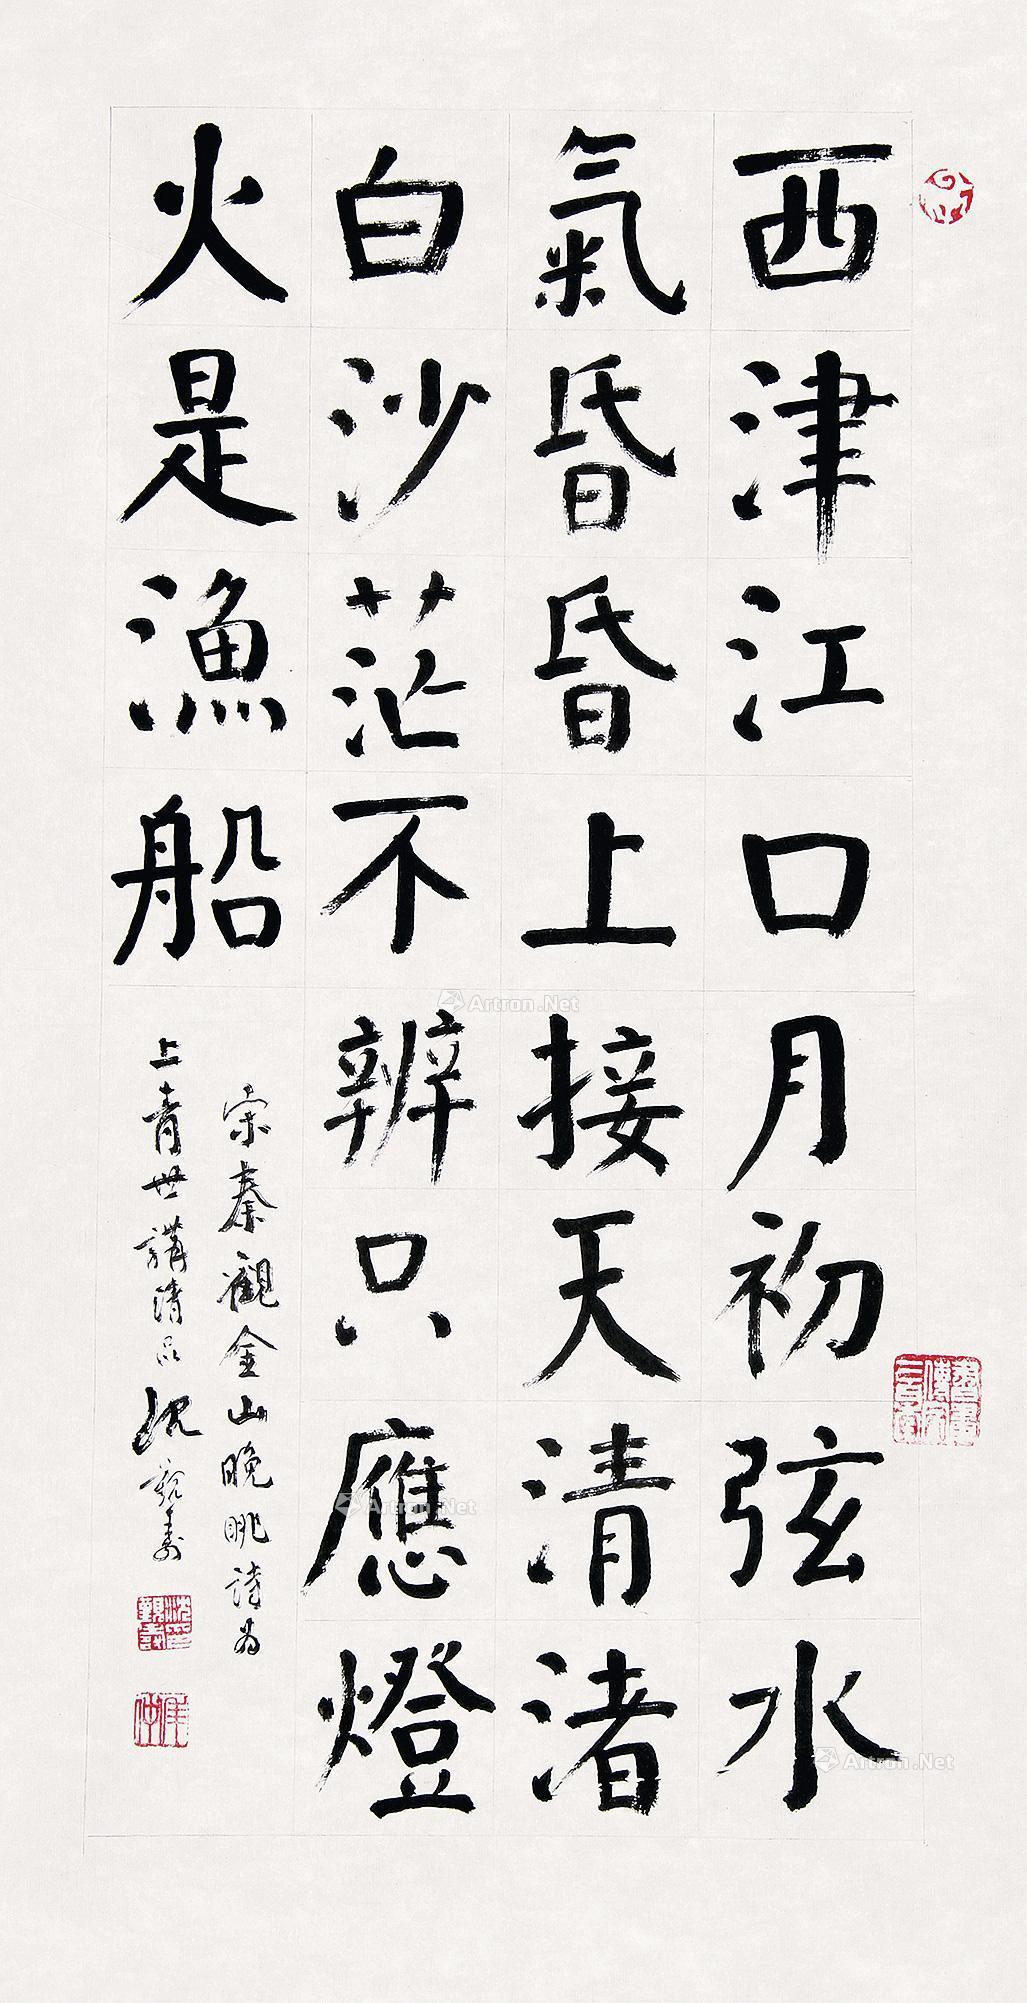 西津江口月初弦水
氣昏昏上接天清渚
白沙茫不辨只應燈
火是漁船
宋秦觀金山晚眺詩為
上青世講清品 沈覲壽
沈覲壽印
Artron.Net
Artron.Net
Artron.Net